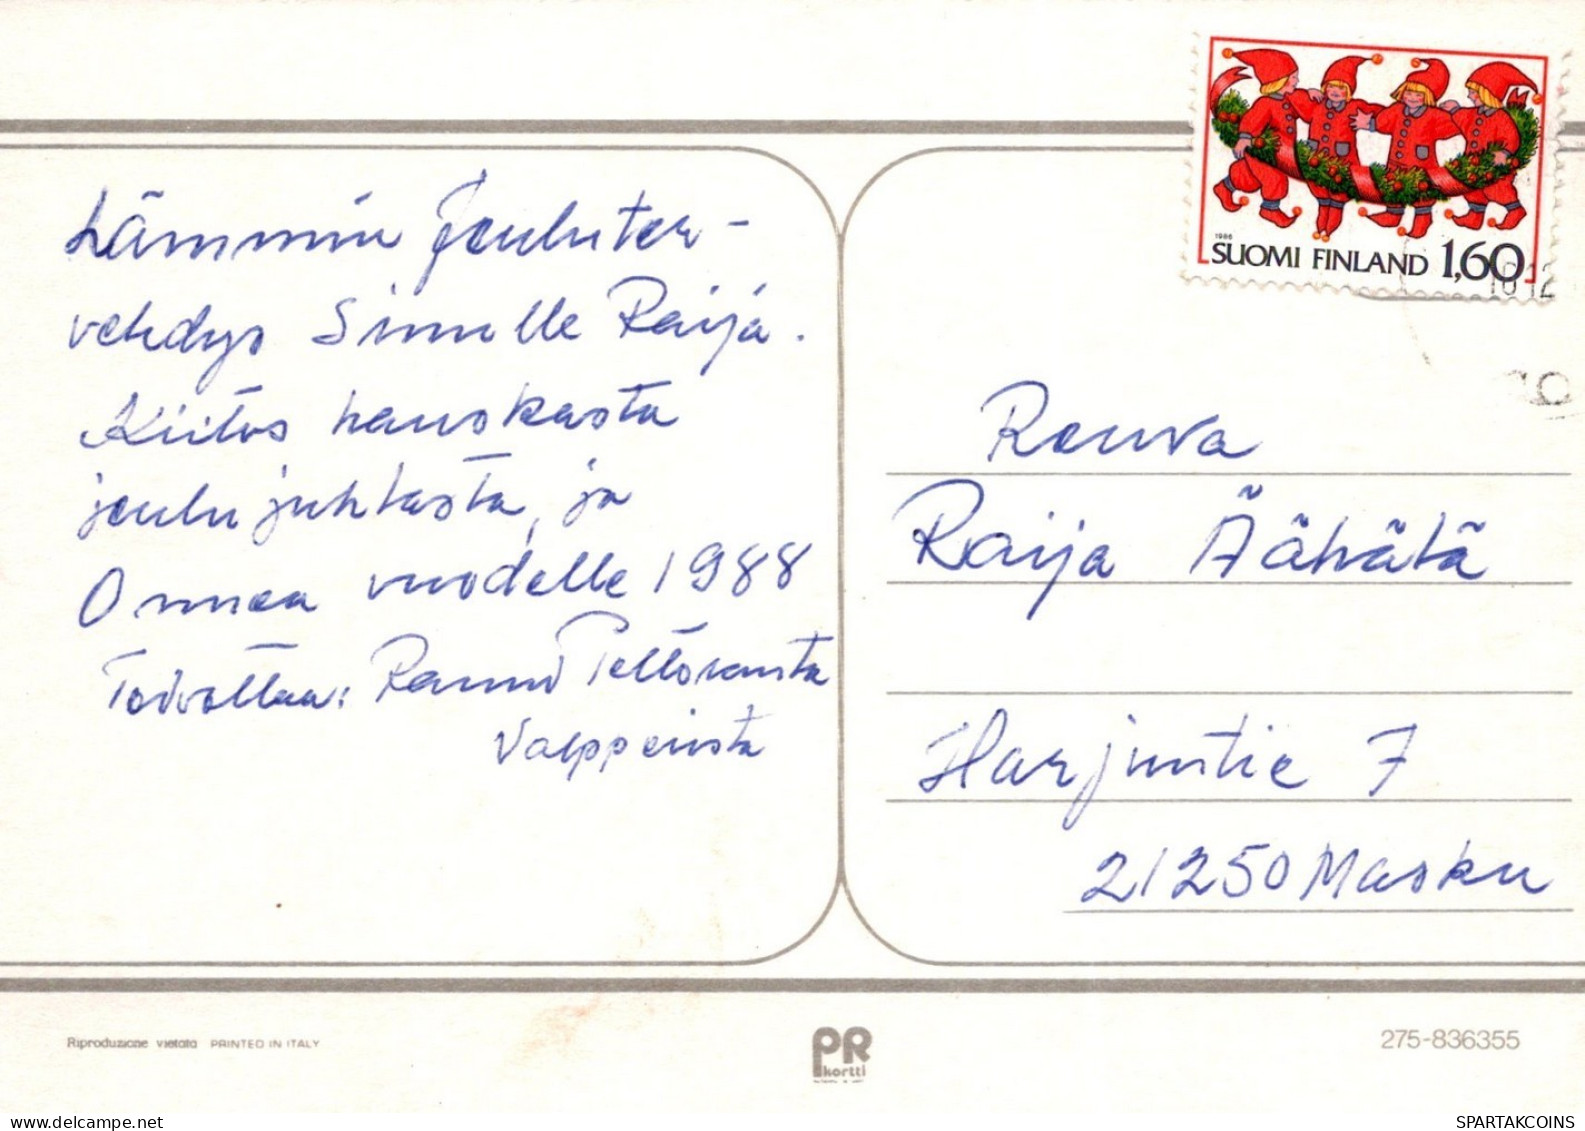 Lämmin Jouluter-
vehdys Sinulle Raija.
Kiitos hauskasta
joulujuhlasta, ja
Onnea vuodelle 1988
Toivottaa: Rauni Peltoranta
1986
SUOMI FINLAND 1,60
10 12
Rouva
Raija
Harjuntie 7
21250 Masku
Riproduzione vietata PRINTED IN ITALY
PR
kortti
275-836355
SPARTAKCOINS